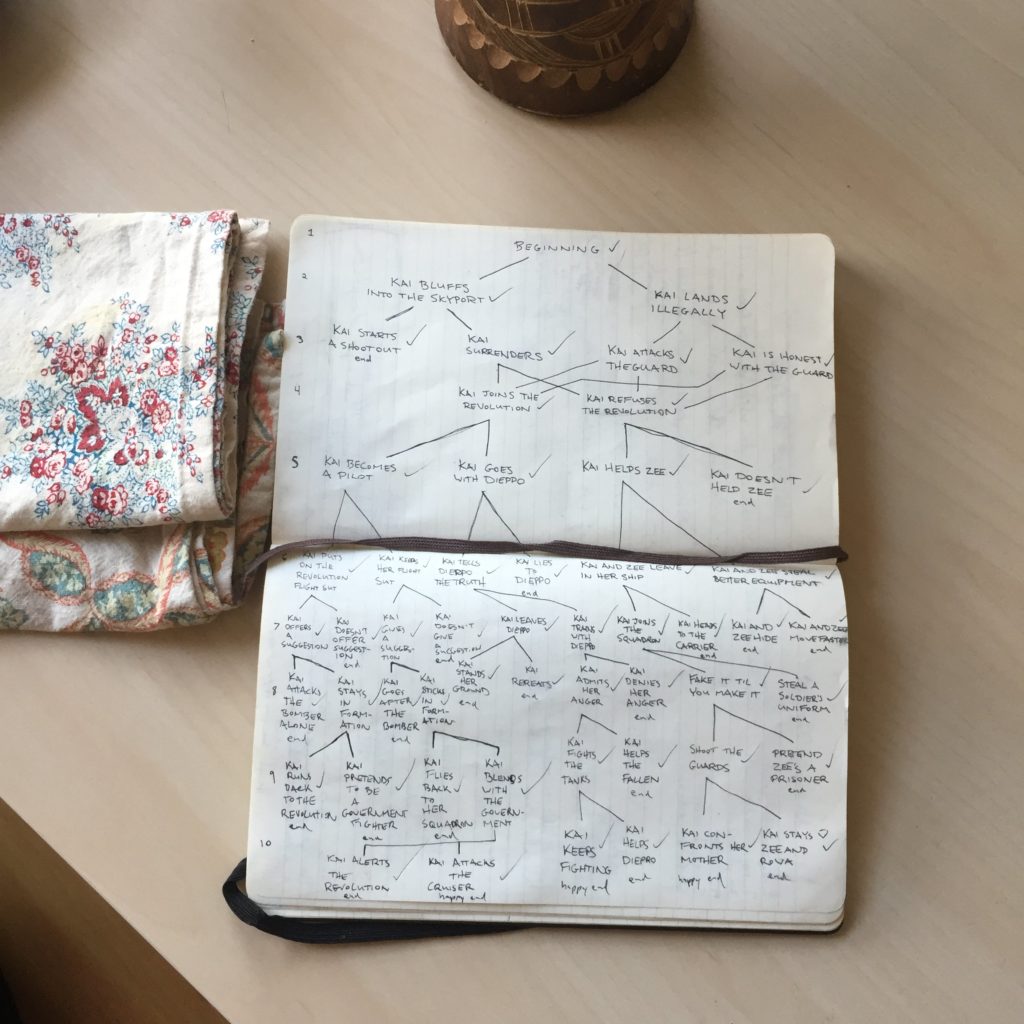 1
BEGINNING ✓
2
KAI BLUFFS
INTO THE SKYPORT ✓
KAI LANDS ✓
ILLEGALLY
3
KAI STARTS ✓
A SHOOTOUT
end
KAI ✓
SURRENDERS
KAI ATTACKS ✓
THE GUARD
KAI IS HONEST ✓
WITH THE GUARD
4
KAI JOINS THE ✓
REVOLUTION ✓
KAI REFUSES
THE REVOLUTION ✓
5
KAI BECOMES ✓
A PILOT
KAI GOES ✓
WITH DIEPPO
KAI HELPS ZEE ✓
KAI DOESN'T ✓
HELD ZEE
end
KAI PUTS
ON THE
REVOLUTION
FLIGHT SUIT
KAI KEEPS
HER FLIGHT
SUIT
KAI TELLS
DIEPPO
THE TRUTH
KAI LIES
TO ✓
DIEPPO
end
KAI AND ZEE LEAVE ✓
IN HER SHIP
KAI AND ZEE STEAL
BETTER EQUIPMENT ✓
7
KAI
OFFERS ✓
A
SUGGESTION
KAI
DOESN'T ✓
OFFER
SUGGEST-
ION
end
KAI
GIVES ✓
A
SUGGES-
TION
KAI
DOESN'T ✓
GIVE
A
SUGGESTION
end
KAI LEAVES ✓
DIEPPO
KAI
TRAINS ✓
WITH
DIEPPO
KAI JOINS ✓
THE
SQUADRON
KAI HEADS ✓
TO THE
CARRIER
end
KAI AND ✓
ZEE HIDE
end
KAI AND ZEE
MOVE FASTER ✓
end
KAI
STANDS ✓
HER
GROUND
end
KAI ✓
REPEATS
end
8
KAI
ATTACKS ✓
THE
BOMBER
ALONE
end
KAI
STAYS ✓
IN
FORM-
ATION
KAI
GOES
AFTER ✓
THE
BOMBER
end
KAI
STICKS ✓
IN
FORM-
ATION
KAI
ADMITS ✓
HER
ANGER
KAI
DENIES ✓
HER
ANGER
end
FAKE IT TIL ✓
YOU MAKE IT
STEAL A
SOLDIER'S ✓
UNIFORM
end
9
KAI
RUNS ✓
BACK
TO THE
REVOLUTION
end
KAI
PRETENDS ✓
TO BE
A
GOVERNMENT
FIGHTER
end
KAI
FLIES ✓
BACK
TO
HER
SQUADRON
end
KAI
BLENDS ✓
WITH
THE
GOVERN-
MENT
KAI
FIGHTS ✓
THE
TANKS
KAI
HELPS ✓
THE
FALLEN
end
SHOOT THE ✓
GUARDS
PRETEND ✓
ZEE'S A
PRISONER
end
10
KAI ALERTS ✓
THE
REVOLUTION
end
KAI ATTACKS ✓
THE
CRUISER
happy end
KAI
KEEPS ✓
FIGHTING
happy end
KAI
HELPS ✓
DIEPPO
end
KAI CON-
FRONTS HER ✓
MOTHER
happy end
KAI STAYS ♡
ZEE AND ✓
ROVA
end